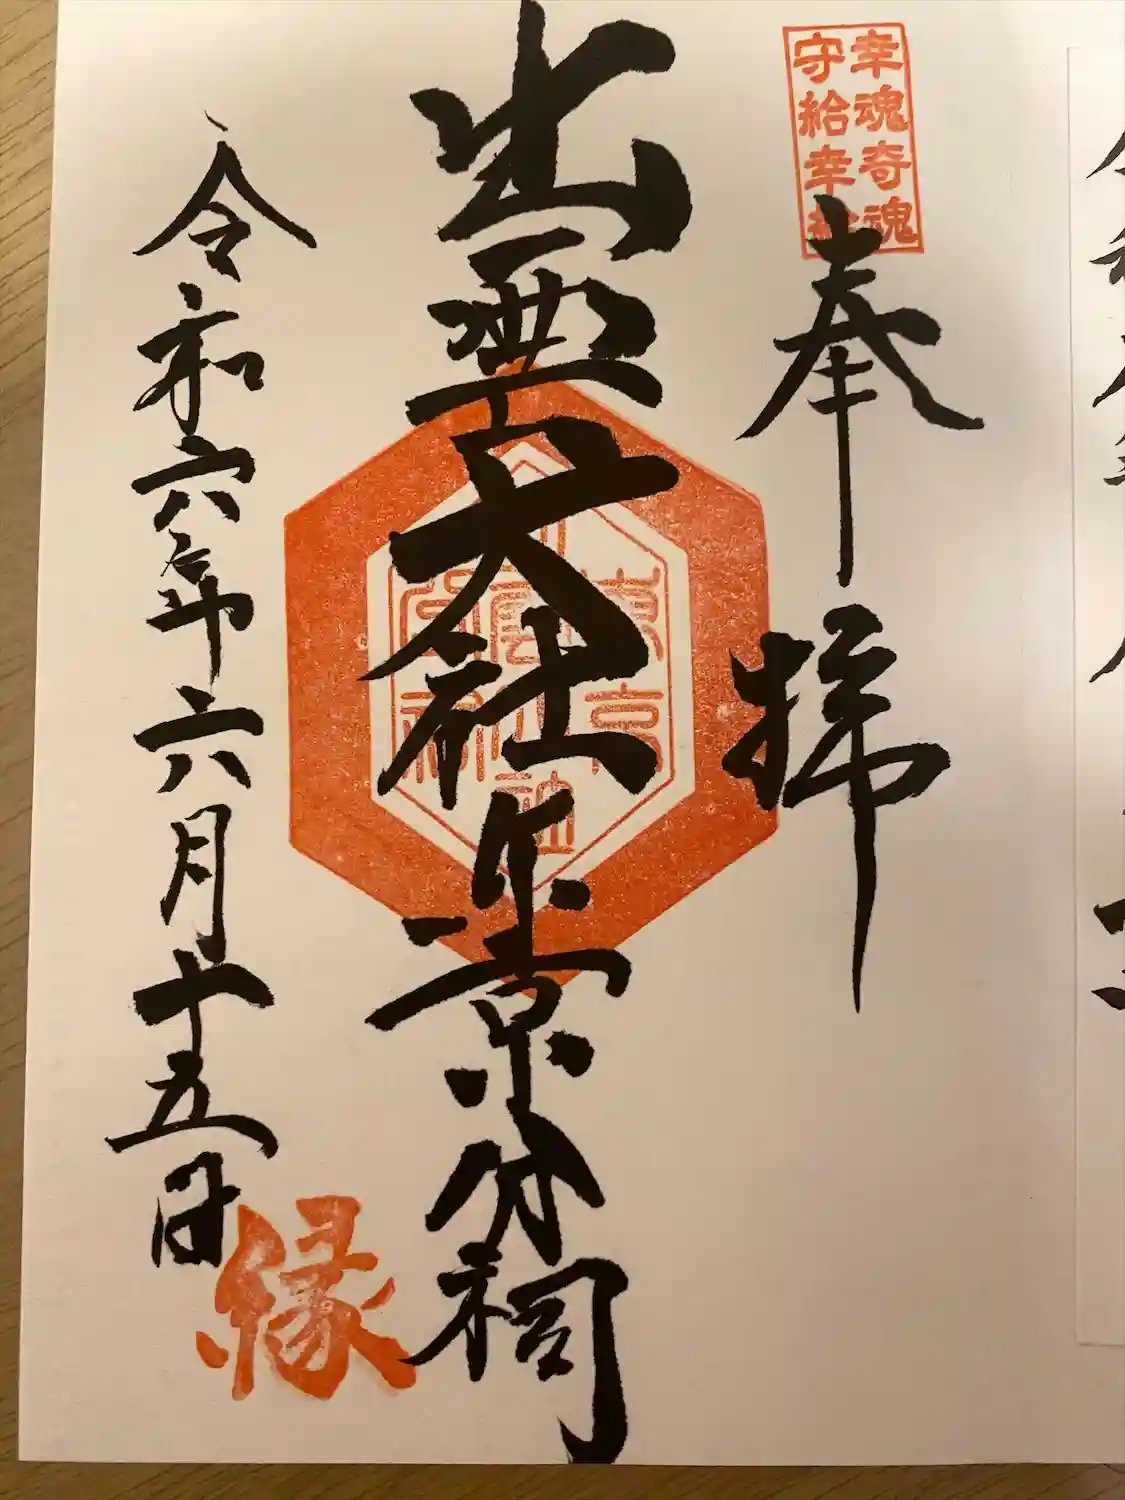 幸魂奇魂
守給幸給
奉拝
出雲大社東京分祠
令和六年六月十五日
縁